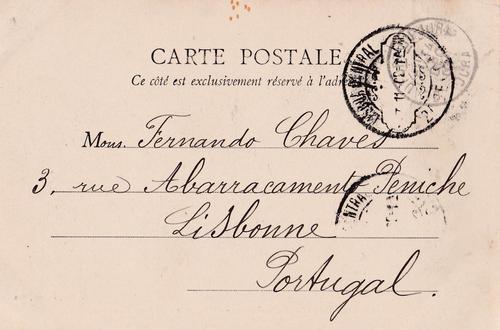 CARTE POSTALE
Ce côté est exclusivement réservé à l'adresse
Mons. Fernando Chaves
3, rue Abarracamento Peniche
Lisbonne
Portugal.